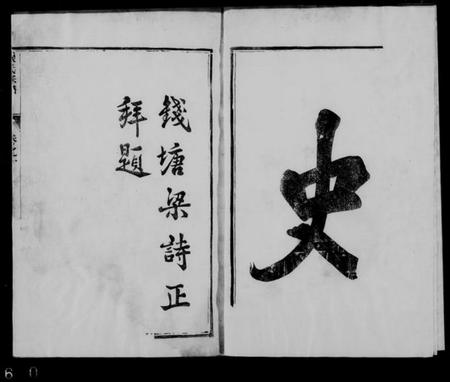 史
錢塘梁詩正
拜題